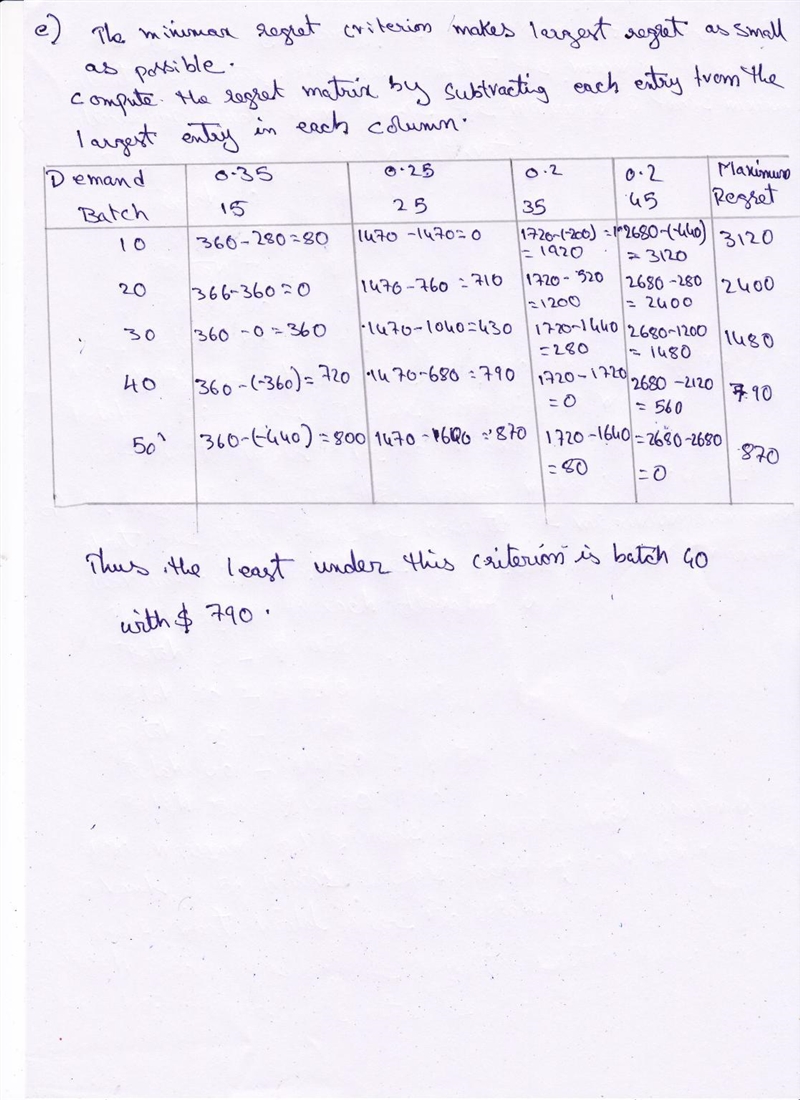 e) The minimax regret criterion makes largest regret as small
as possible.
compute the regret matrix by subtracting each entry from the
largest entry in each column.
Demand 0.35 0.25 0.2 0.2 Maximum
Batch 15 25 35 45 Regret
10 360-280=80 1470-1470=0 1720-(-200) = 2680-(-440) 3120
=1920 = 3120
20 366-360=0 1470-760=710 1720-520 2680-280 2400
=1200 = 2400
30 360-0=360 1470-1040=430 1720-1440 2680-1200 1480
=280 = 1480
40 360-(-360)=720 1470-680=790 1720-1720 2680-2120 790
=0 = 560
50 360-(-440)=800 1470- =870 1720-1640 =2680-2680 870
=80 =0
Thus, the least under this criterion is batch 40
with $ 790.